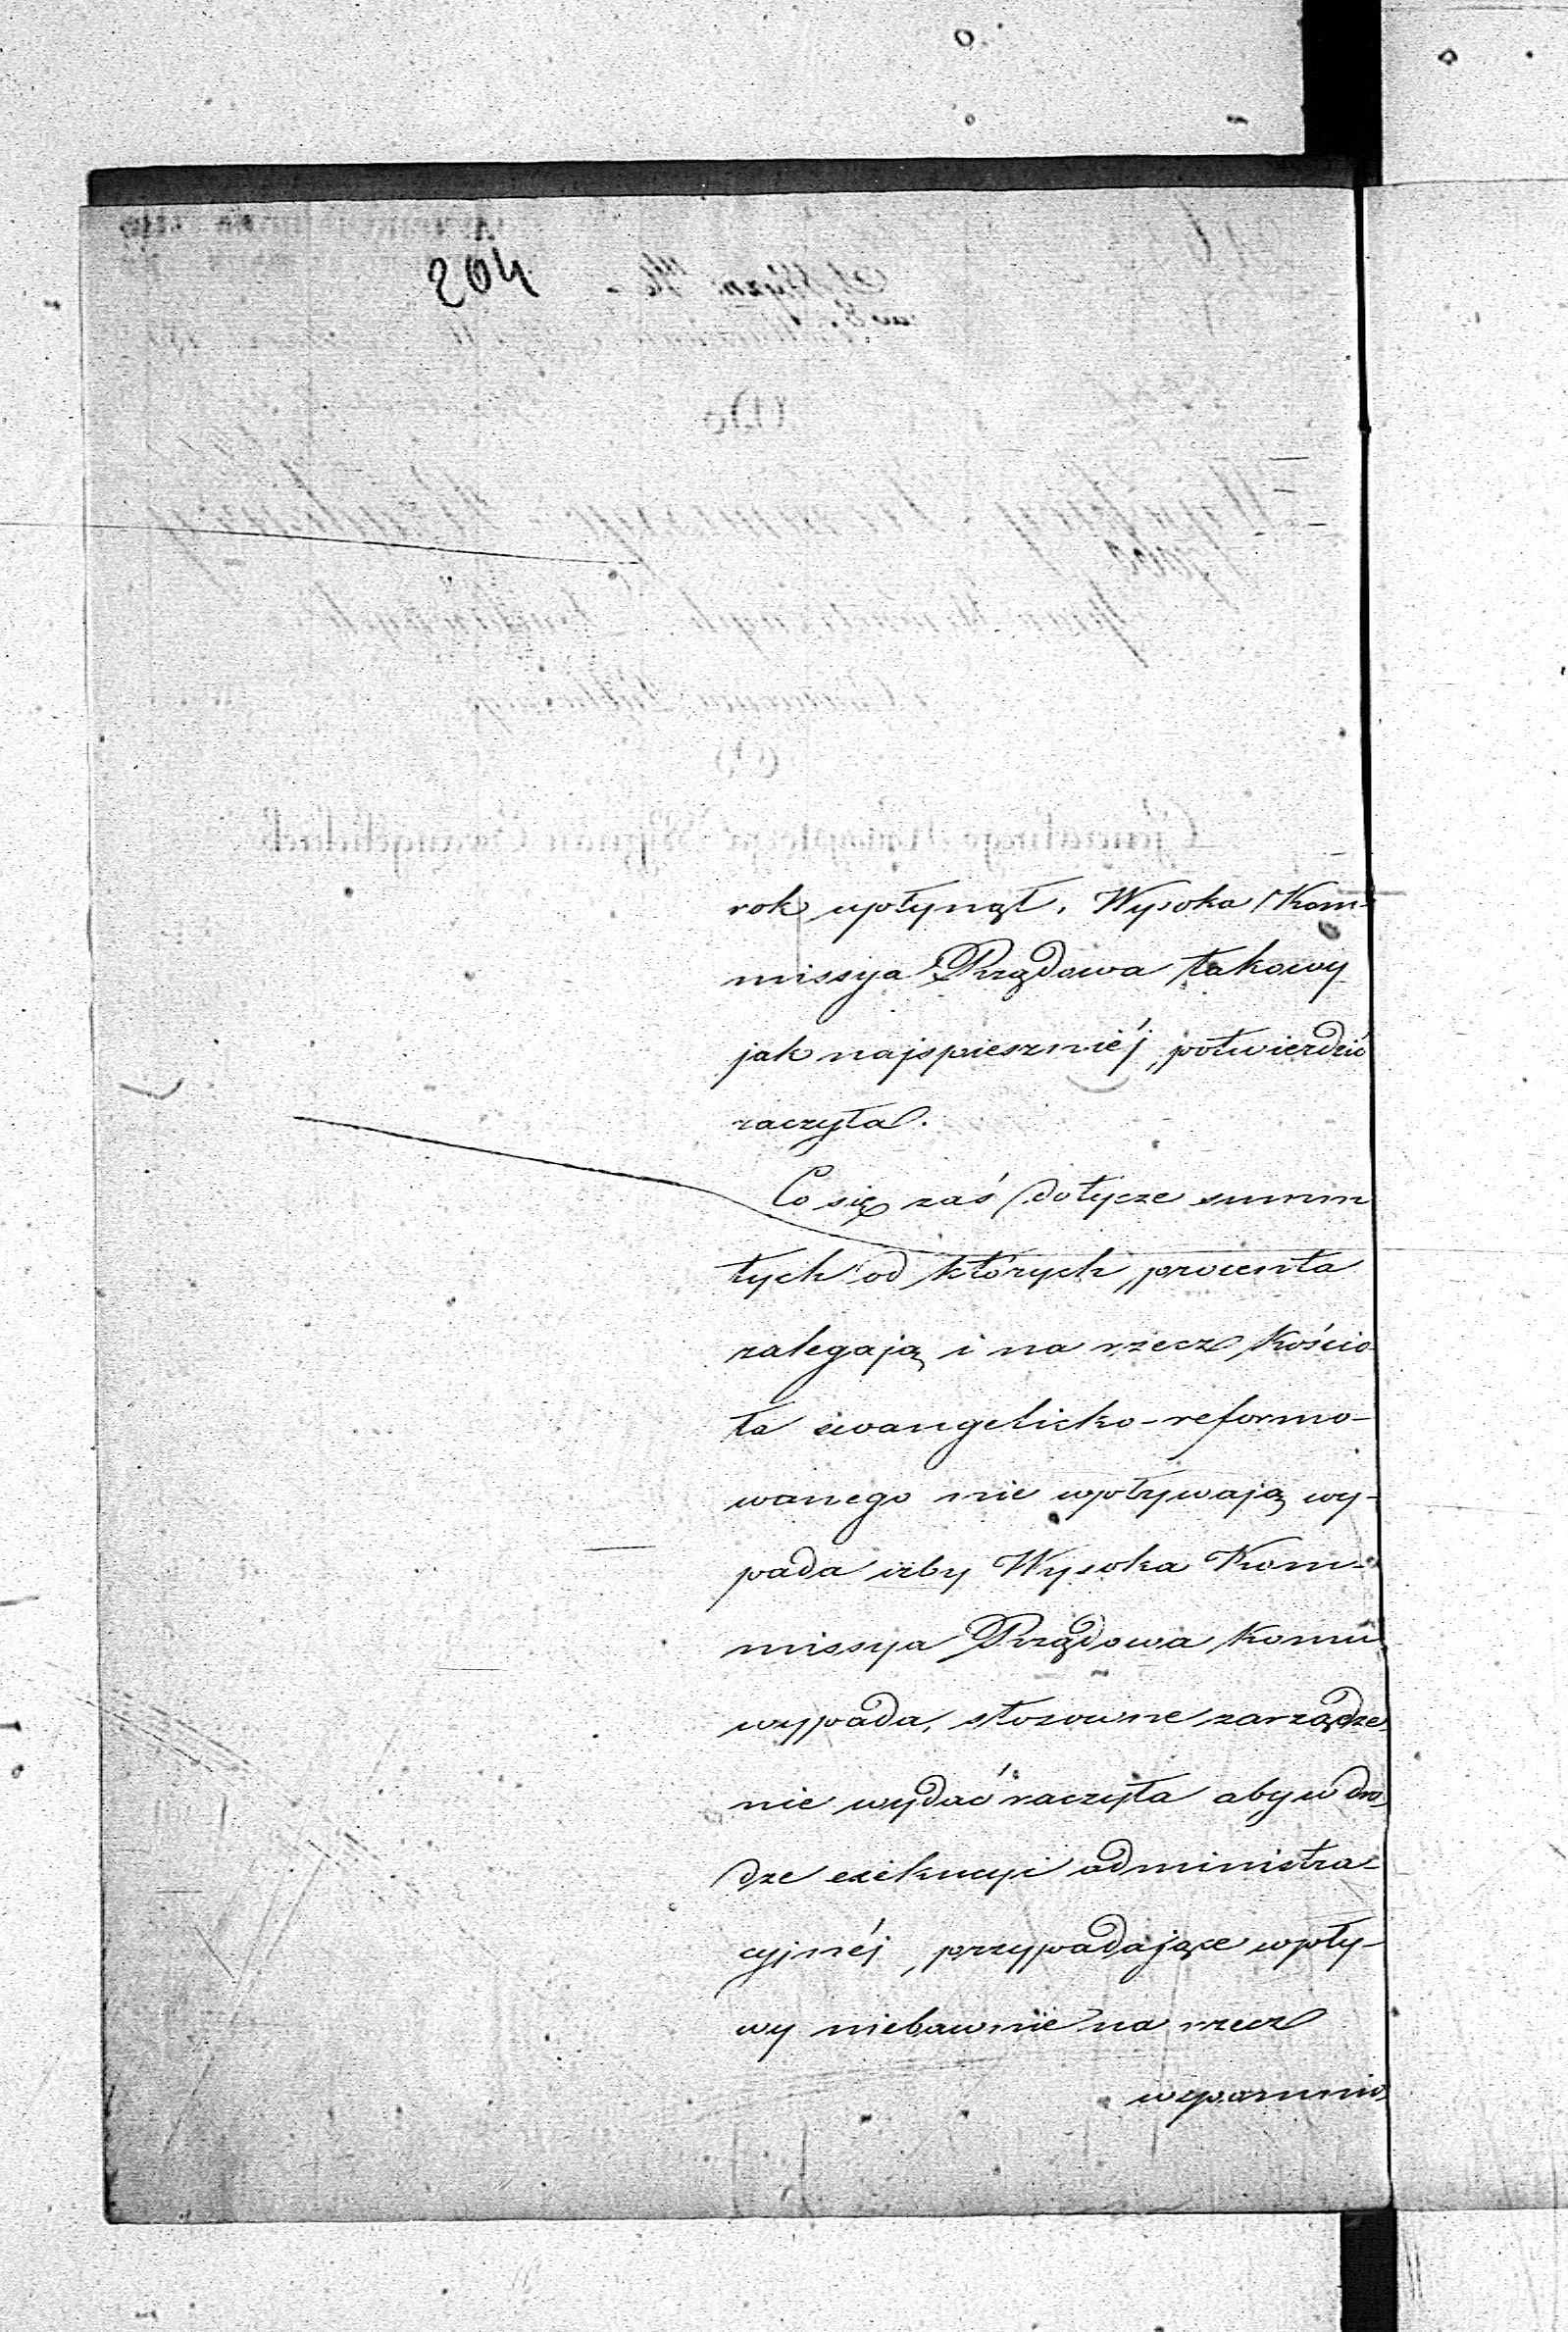 204
rok upłynął, Wysoka Kom-
missya Rządowa takowy
jak najspieszniéj potwierdzić
raczyła.
Co się zaś dotycze summ
tych od których procenta
zalegają i na rzecz Kościo
ła ewangelicko-reformo-
wanego nie wpływają wy-
pada iżby Wysoka Kom-
missya Rządowa komu
wypada, stosowne zarządze
nie wydać raczyła aby w dro
dze exekucyi administra-
cyjnéj przypadające wpły-
wy niebawnie na rzecz
wspomnio